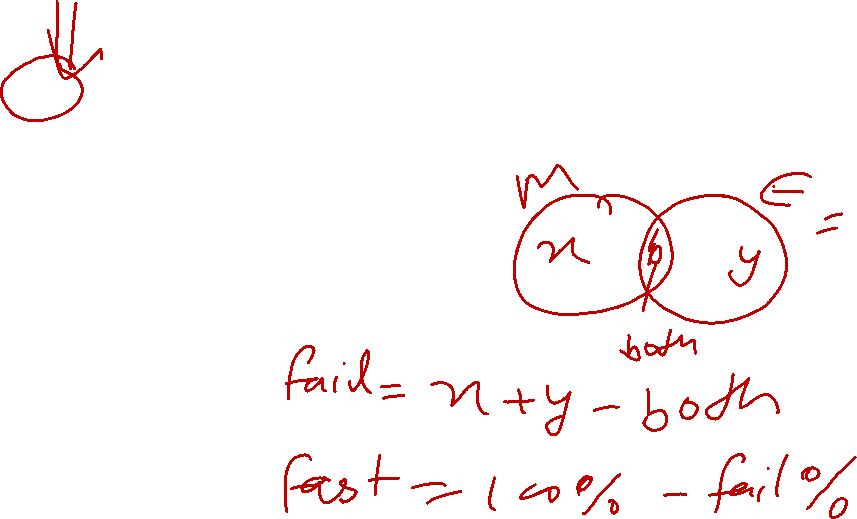 M E
x b y =
both
fail = x + y - both
Past = 100% - fail%